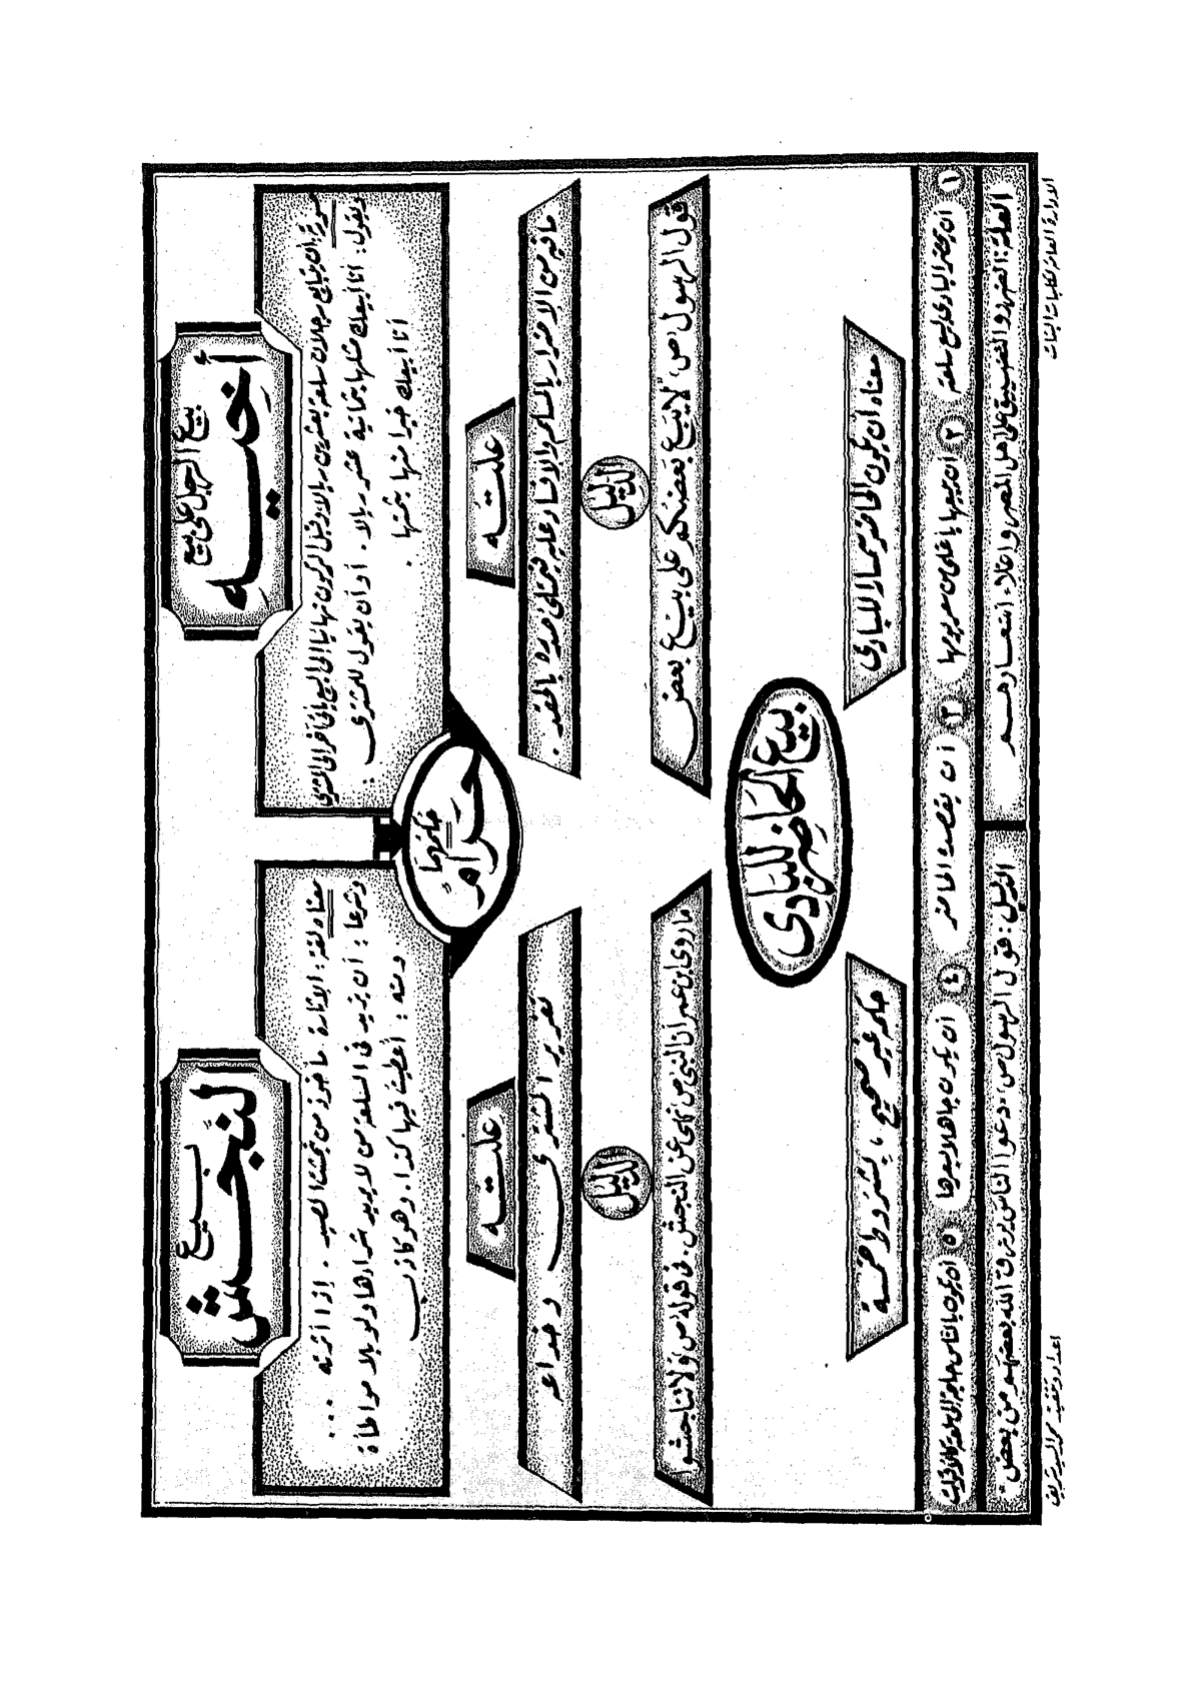 بيع الرجل على بيع
أخيه
صورته: ان يتبايع رجلان سلعة بعشرين ريالا وقبل
ويقول: أنا أبيعك مثلها بثمانية عشر ريالا. أو أن يقول للمشتري:
أنا أبيعك خيرا منها بثمنها.
بيع
النجش
معناه لغة: الإثارة مأخوذ من نجشت الصيد. إذا أثرته ...
وشرعا: أن يزيد في السلعة من لا يريد شراءها ولو بلا مواطأة
ومنه: أعطيت فيها كذا. وهو كاذب
حكمهما
حرام
علته
ما فيه من الإضرار بالمسلم والإفساد عليه
علته
تغرير المشتري وخداعه
الدليل
قول الرسول ص، "لا يبيع بعضكم على بيع بعض
الدليل
ما روى ابن عمر ان النبي ص نهى عن النجش. في قوله ص ولا تناجشوا
بيع الحاضر للبادي
معناه أن يكون الحاضر سمسارا للبادي
حكمه غير صحيح بالشروط خمسة
١ ان يحضر البادي لبيع سلعته
٢ أن يبيعها بأغلى من سعر يومها
٣ أن يقصده الحاضر
٤ أن يكون جاهلا بسعرها
٥ ان يكون بالناس حاجة إلى
العلة: الضرر والتضييق على اهل المصر واغلاء اسعارهم
الدليل: قول الرسول ص، "دعوا الناس يرزق الله بعضهم من بعض"
الادارة العامة لكليات البنات
اعداد وتنفيذ